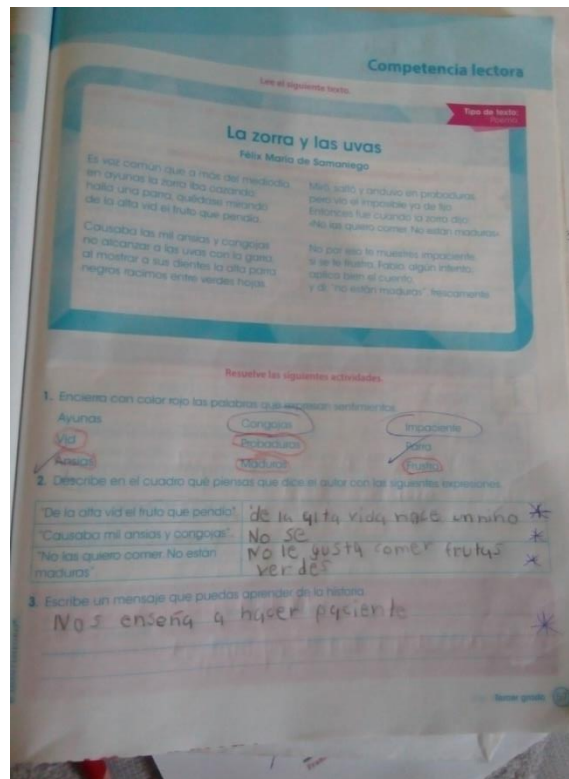 Competencia lectora
Lee el siguiente texto.
Tipo de texto:
Poema
La zorra y las uvas
Félix María de Samaniego
Es voz común que a más del mediodía
en ayunas la zorra iba cazando;
halla una parra, quédase mirando
de la alta vid el fruto que pendía.
Causaba las mil ansias y congojas
no alcanzar a las uvas con la garra,
al mostrar a sus dientes la alta parra
negros racimos entre verdes hojas.
Miró, saltó y anduvo en probaduras,
pero vio el imposible ya de fijo.
Entonces fue cuando la zorra dijo:
«No las quiero comer. No están maduras».
No por eso te muestres impaciente,
si se te frustra, Fabio, algún intento;
aplica bien el cuento,
y di: "no están maduras", frescamente.
Resuelve las siguientes actividades.
1. Encierra con color rojo las palabras que expresan sentimientos.
Ayunas Congojas Impaciente
Vid Probaduras Parra
Ansias Maduras Frustra
2. Describe en el cuadro qué piensas que dice el autor con las siguientes expresiones.
"De la alta vid el fruto que pendía". de la alta vida nace un niño
"Causaba mil ansias y congojas". No se
"No las quiero comer. No están No le gusta comer frutas
maduras" verdes
3. Escribe un mensaje que puedas aprender de la historia.
Nos enseña a hacer paciente
Tercer grado